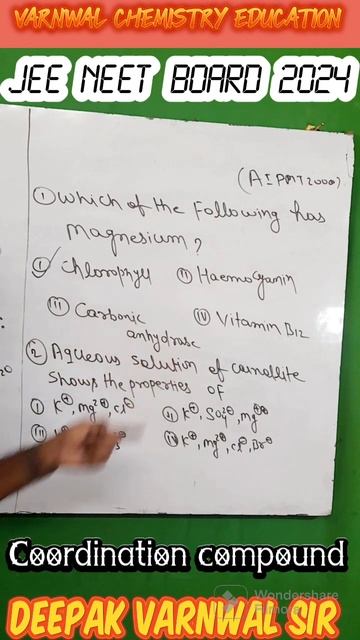 VARNWAL CHEMISTRY EDUCATION
JEE NEET BOARD 2024
(AIPMT 2000)
① Which of the Following has
Magnesium?
① Chlorophyll ② Haemocyanin
③ Carbonic anhydrase ④ Vitamin B12
② Aqueous solution of carnallite
Shows the properties of
① K⊕, mg2⊕, cl⊖ ② K⊕, SO4
④ K⊕, mg2⊕, cl⊖, Br⊖
Coordination compound
Wondershare
Filmora
DEEPAK VARNWAL SIR